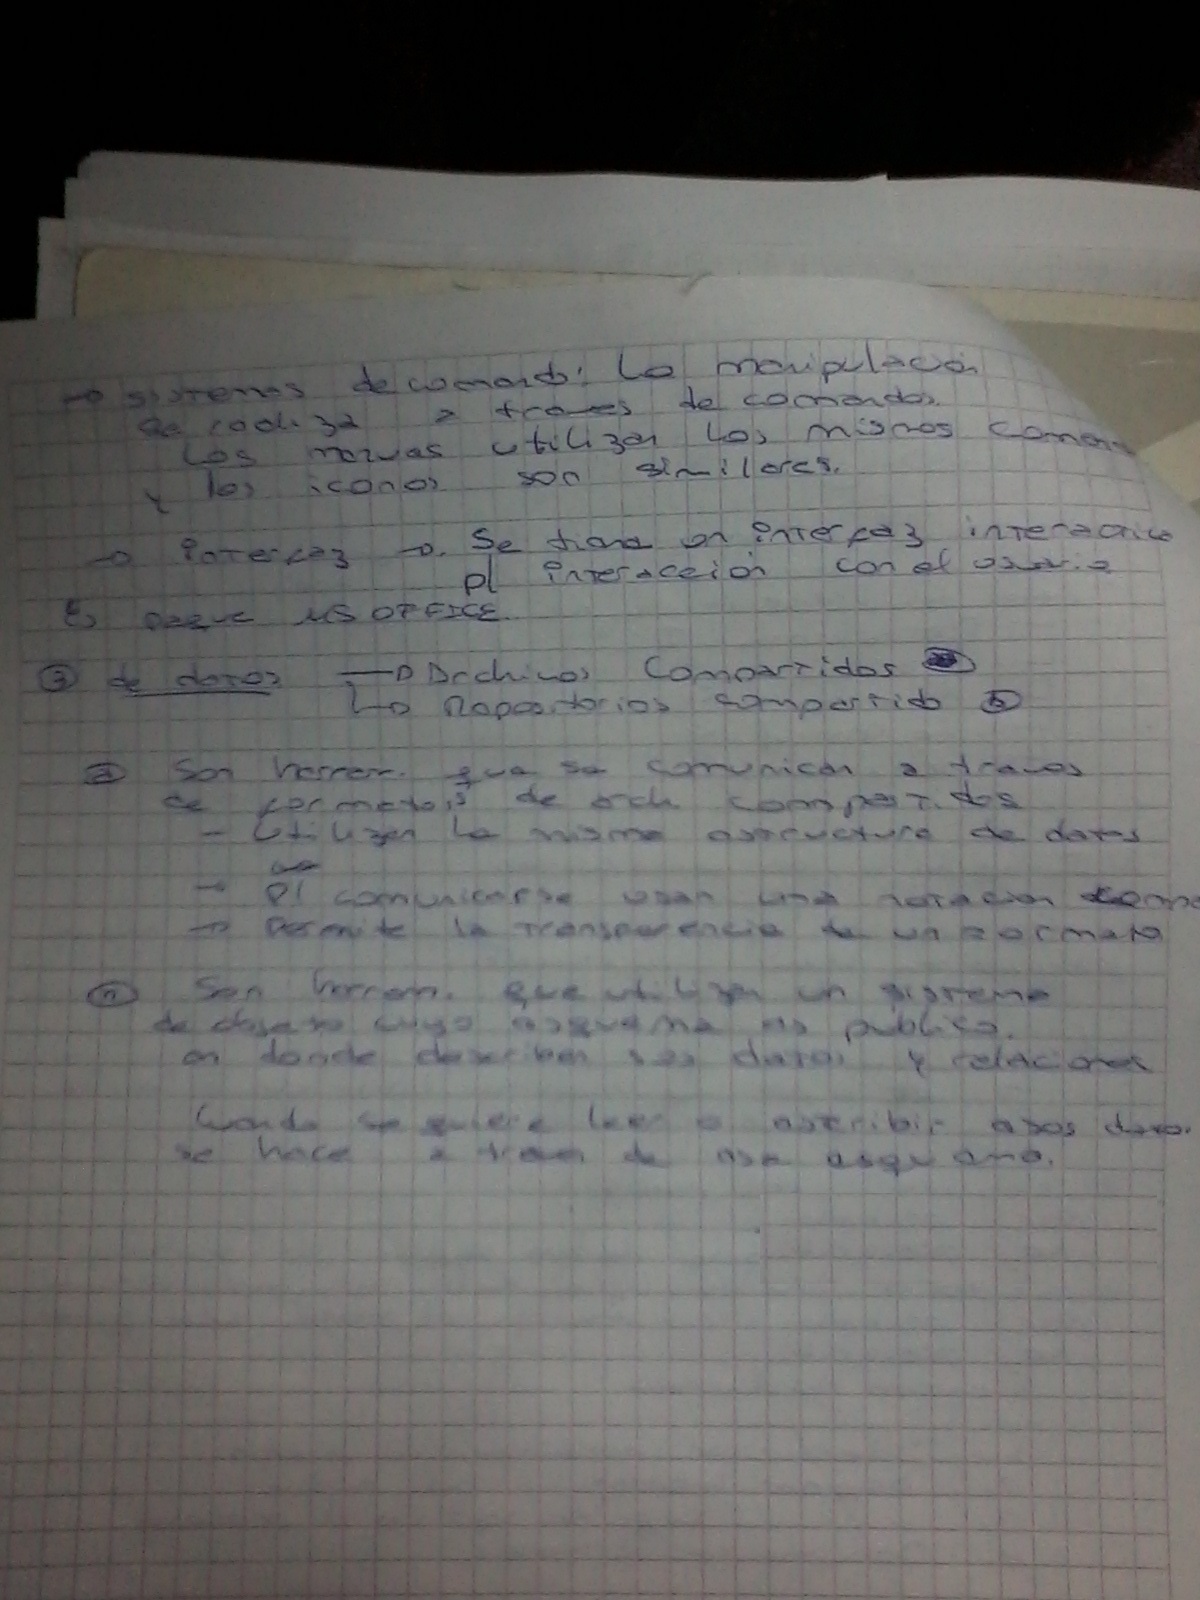 → sistemas de comando: La manipulación
se realiza a traves de comandos.
Los menus utilizan los mismos coman
y los iconos son similares.
→ interfaz → Se tiene un interfaz interactiva
p/ interacción con el usuario
Ej paque MS OFFICE.
③ de datos → Archivos Compartidos
→ Repositorios compartido ⓑ
ⓐ Son herram. que se comunican a traves
de formatos de arch compartidos
- Utilizan la misma estructura de datos
→ p/ comunicarse usan una notación
→ Permite la transparencia de un formato
Son herram. que utilizan un sistema
de objeto cuyo esquema es publico.
en donde describen sus datos y relaciones
Cuando se quiere leer o escribir esos datos
se hace a traves de ese esquema.